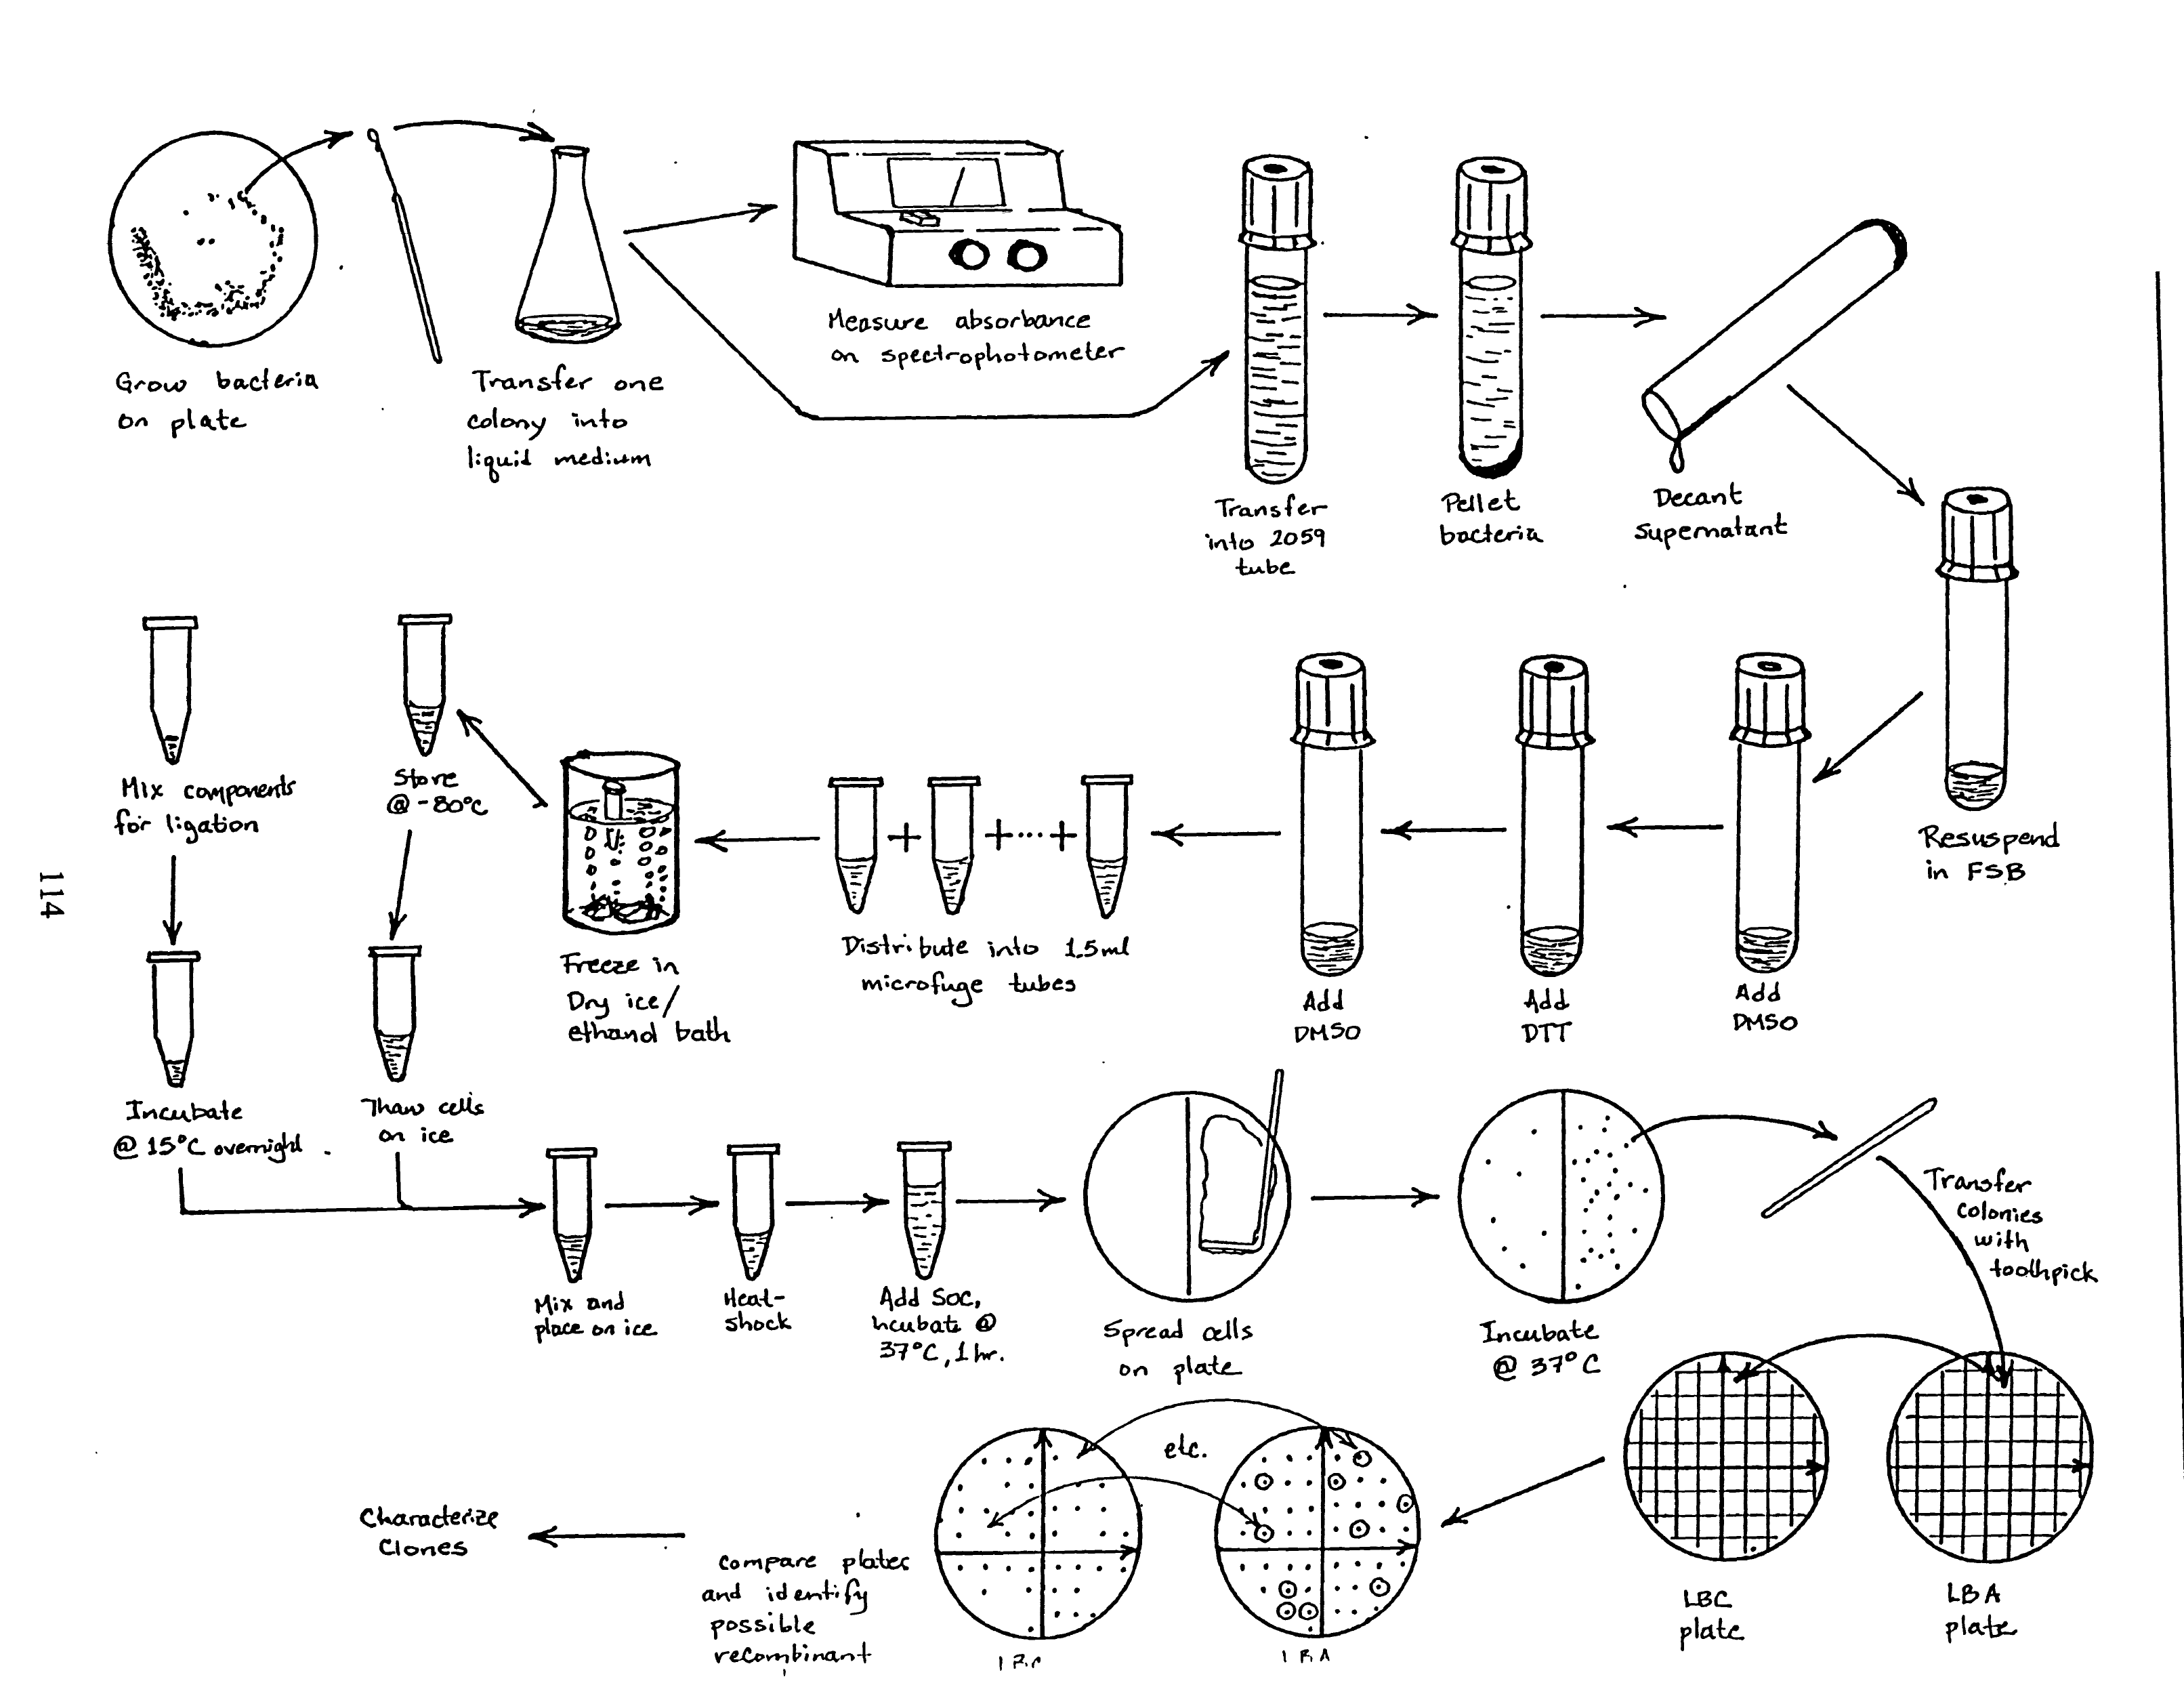 Grow bacteria
on plate
Transfer one
colony into
liquid medium
Measure absorbance
on spectrophotometer
Transfer
into 2059
tube
Pellet
bacteria
Decant
Supernatant
Resuspend
in FSB
Add
DMSO
Add
DTT
Add
DMSO
Distribute into 1.5ml
microfuge tubes
Freeze in
Dry ice/
ethanol bath
Store
@ -80°C
Mix components
for ligation
114
Incubate
@ 15°C overnight.
Thaw cells
on ice
Mix and
place on ice
Heat-
shock
Add SOC,
Incubate @
37°C, 1 hr.
Spread cells
on plate
Incubate
@ 37°C
Transfer
colonies
with
toothpick
LBC
plate
LBA
plate
etc.
LBC
LBA
Compare plates
and identify
possible
recombinant
Characterize
Clones